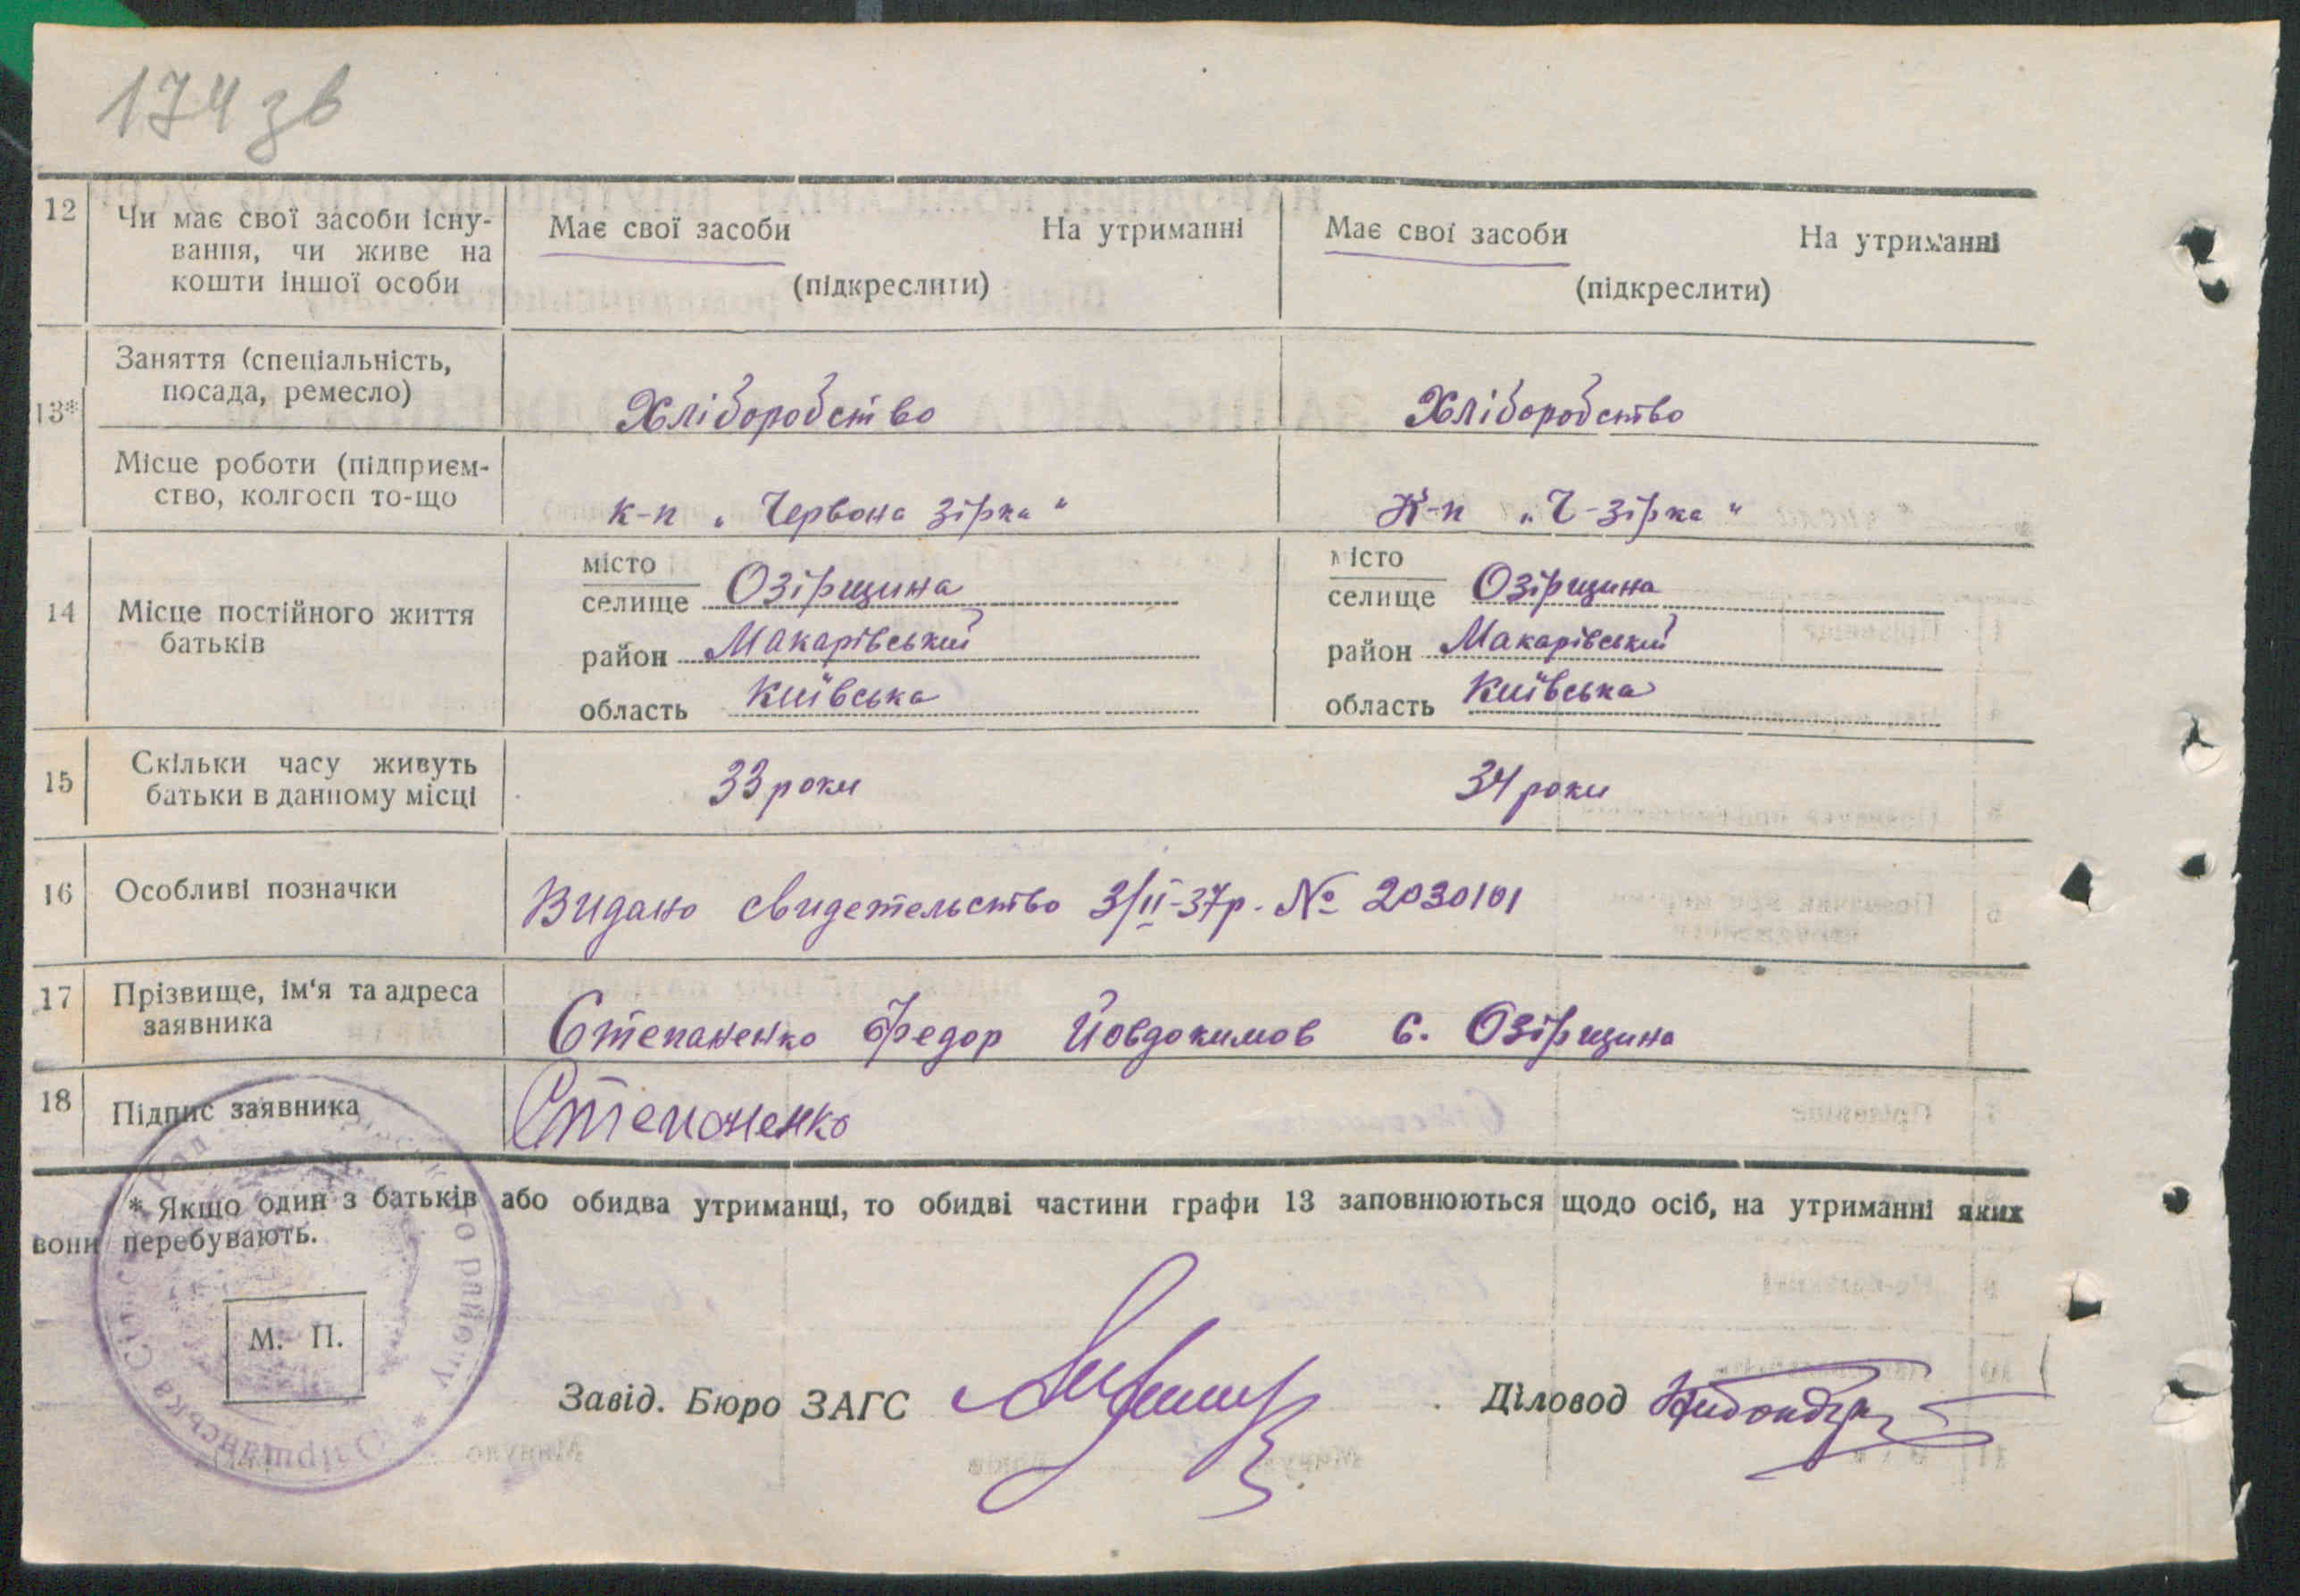 174 зв
12 Чи має свої засоби існу-
вання, чи живе на
кошти іншої особи
Має свої засоби На утриманні
(підкреслити)
Має свої засоби На утриманні
(підкреслити)
13*
Заняття (спеціальність,
посада, ремесло)
Хліборобство
Хліборобство
Місце роботи (підприєм-
ство, колгосп то-що
к-п „Червона Зірка"
К-п „Ч-Зірка"
14 Місце постійного життя
батьків
місто
селище Озірщина
район Макарівський
область Київська
місто
селище Озірщина
район Макарівський
область Київська
15 Скільки часу живуть
батьки в данному місці
33 роки
34 роки
16 Особливі позначки
Видано свидетельство 3/ІІ-37р. № 2030101
17 Прізвище, ім'я та адреса
заявника
Степаненко Федор Йовдокимов с. Озірщина
18 Підпис заявника
Степоненко
* Якщо один з батьків або обидва утриманці, то обидві частини графи 13 заповнюються щодо осіб, на утриманні яких
вони перебувають.
М. П.
Завід. Бюро ЗАГС
Діловод